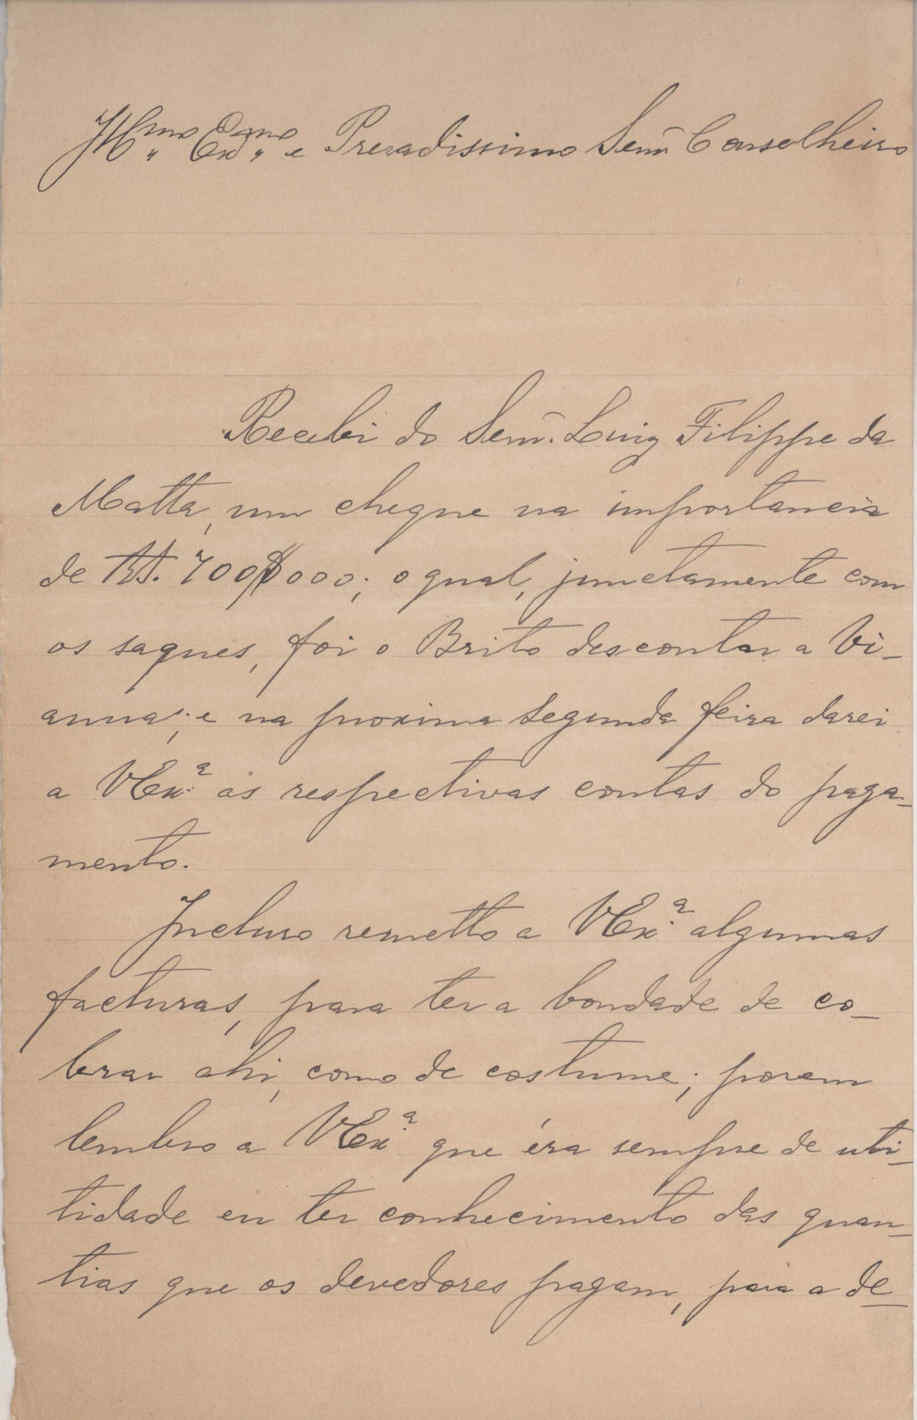 Illmo Exmo e Presadissimo Senr Conselheiro
Recebi do Senr. Luiz Filippe da
Matta, um cheque na importancia
de Rs. 700$000; o qual, junctamente com
os saques, foi o Brito descontar a Vi-
anna; e na proxima segunda feira darei
a VExª as respectivas contas do paga-
mento.
Incluso remetto a VExª algumas
facturas, para ter a bondade de co-
brar ahi, como de costume; porem
lembro a VExª que éra sempre de uti-
lidade eu ter conhecimento das quan-
tias que os devedores pagam, para a de-